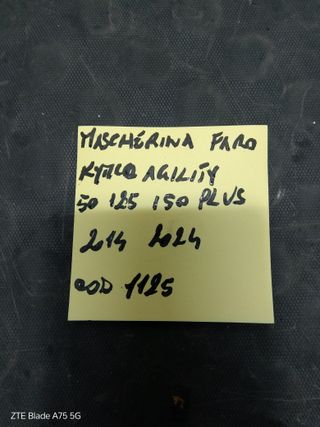 MASCHERINA FARO
KYMCO AGILITY
50 125 150 PLUS
2014 2024
COD 1125
ZTE Blade A75 5G